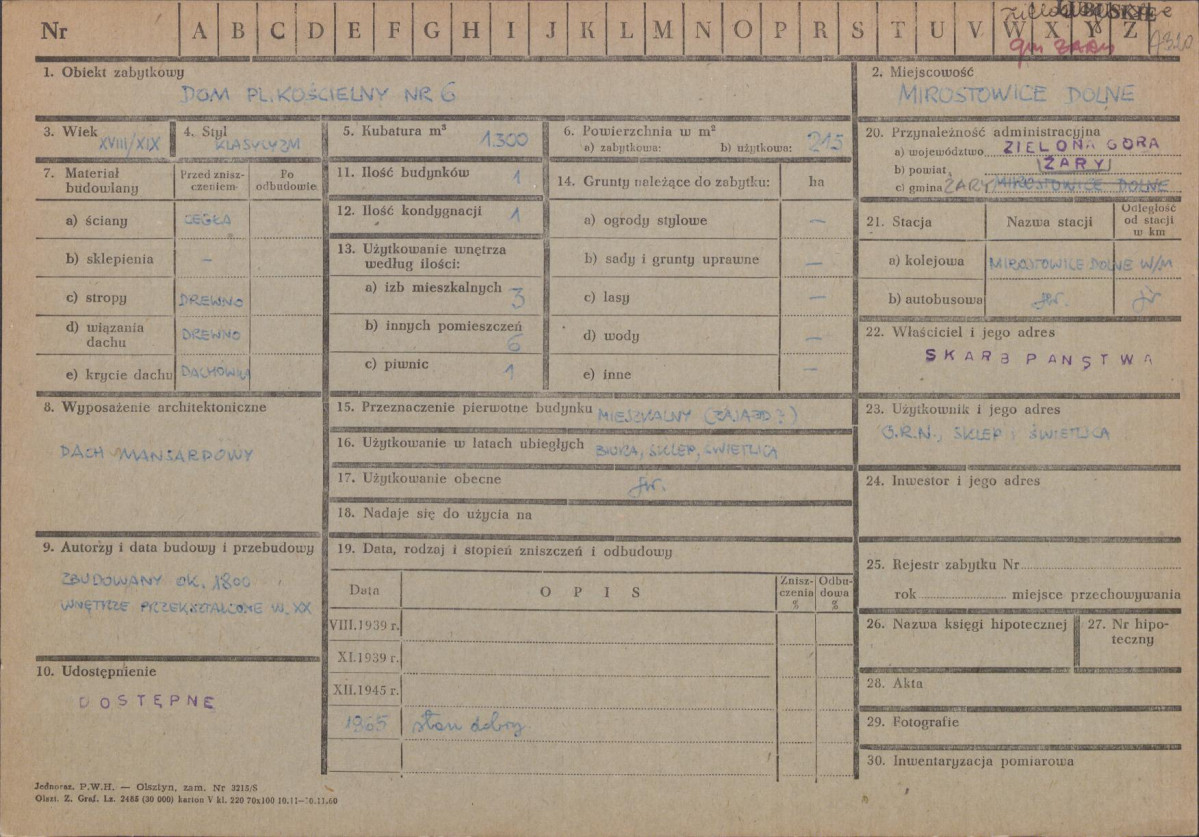 Nr A B C D E F G H I J K L M N O P R S T U V W X Y Z
LUBUSKIE
gm ŻARY
1. Obiekt zabytkowy
DOM PL. KOŚCIELNY NR 6
2. Miejscowość
MIROSTOWICE DOLNE
3. Wiek
XVIII/XIX
4. Styl
KLASYCYZM
5. Kubatura m³
1.300
6. Powierzchnia w m²
a) zabytkowa: b) użytkowa: 215
20. Przynależność administracyjna
a) województwo ZIELONA GÓRA
b) powiat ŻARY
c) gmina ŻARY MIROSTOWICE DOLNE
7. Materiał budowlany
Przed znisz-
czeniem
Po
odbudowie
a) ściany CEGŁA
b) sklepienia –
c) stropy DREWNO
d) wiązania
dachu DREWNO
e) krycie dachu DACHÓWKA
11. Ilość budynków 1
12. Ilość kondygnacji 1
13. Użytkowanie wnętrza
według ilości:
a) izb mieszkalnych 3
b) innych pomieszczeń 6
c) piwnic 1
14. Grunty należące do zabytku: ha
a) ogrody stylowe –
b) sady i grunty uprawne –
c) lasy –
d) wody –
e) inne –
21. Stacja Nazwa stacji Odległość
od stacji
w km
a) kolejowa MIROSTOWICE DOLNE W/M
b) autobusowa jw. jw
22. Właściciel i jego adres
SKARB PAŃSTWA
8. Wyposażenie architektoniczne
DACH MANSARDOWY
15. Przeznaczenie pierwotne budynku MIESZKALNY (ZAJAZD?)
16. Użytkowanie w latach ubiegłych BIURA, SKLEP, ŚWIETLICA
17. Użytkowanie obecne jw.
18. Nadaje się do użycia na
23. Użytkownik i jego adres
G.R.N., SKLEP, ŚWIETLICA
24. Inwestor i jego adres
9. Autorzy i data budowy i przebudowy
ZBUDOWANY OK. 1800
WNĘTRZE PRZEKSZTAŁCONE W. XX
19. Data, rodzaj i stopień zniszczeń i odbudowy
Data OPIS Znisz-
czenia
% Odbu-
dowa
%
VIII.1939 r.
XI.1939 r.
XII.1945 r.
1965 stan dobry
10. Udostępnienie
DOSTĘPNE
25. Rejestr zabytku Nr
rok miejsce przechowywania
26. Nazwa księgi hipotecznej
27. Nr hipo-
teczny
28. Akta
29. Fotografie
30. Inwentaryzacja pomiarowa
Jednoraz. P.W.H. — Olsztyn, zam. Nr 3215/S
Olszt. Z. Graf. Lz. 2485 (30 000) karton V kl. 220 70x100 10.11—30.11.60